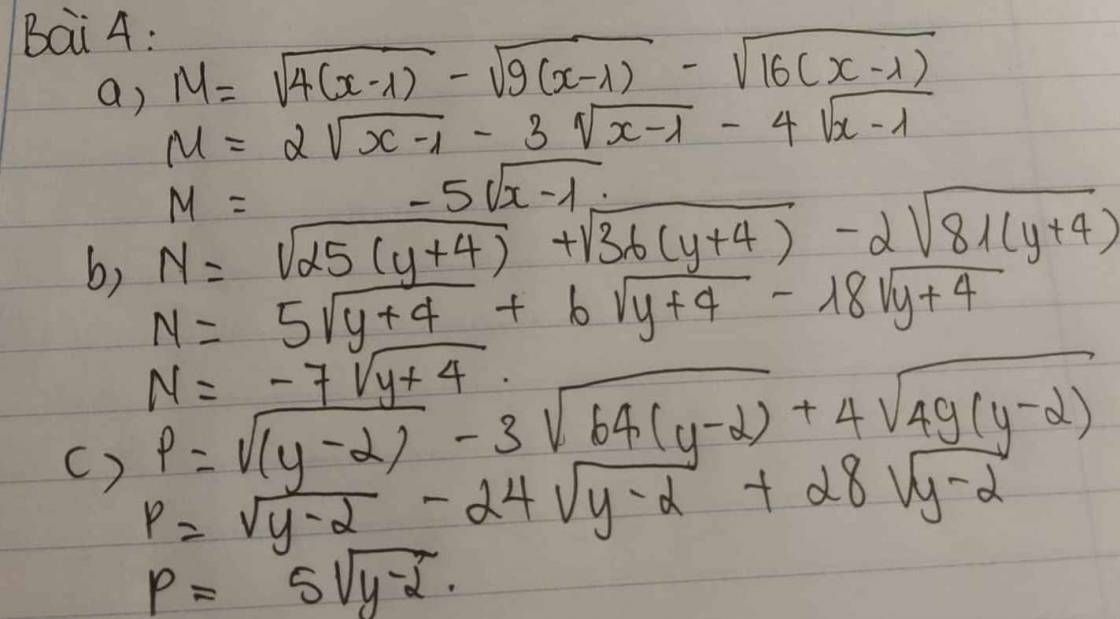 Bài 4:
a) M = √4(x-1) - √9(x-1) - √16(x-1)
M = 2√x-1 - 3√x-1 - 4√x-1
M = -5√x-1.
b) N = √25(y+4) + √36(y+4) - 2√81(y+4)
N = 5√y+4 + 6√y+4 - 18√y+4
N = -7√y+4.
c) P = √(y-2) - 3√64(y-2) + 4√49(y-2)
P = √y-2 - 24√y-2 + 28√y-2
P = 5√y-2.